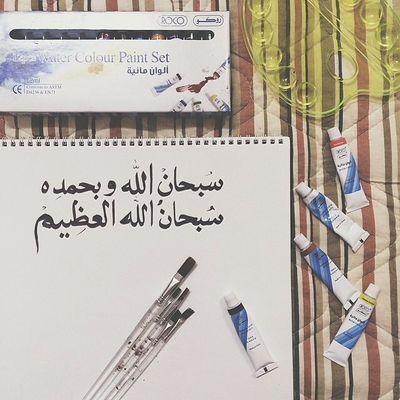 ROCO روكو
Water Colour Paint Set
ألوان مائية
سُبحانْ الله وبحمدِه
سُبحانُ الله العظِيمْ